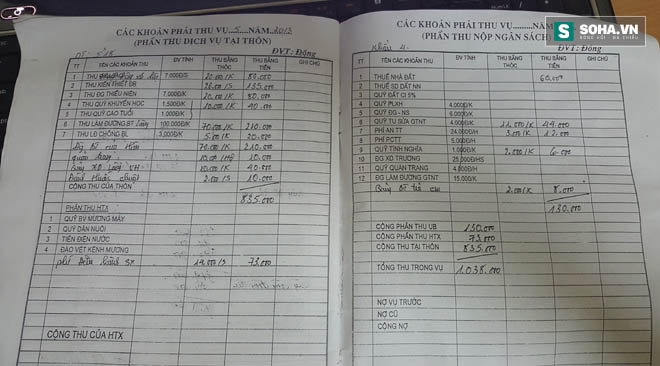 CÁC KHOẢN PHẢI THU VỤ 5 NĂM 2013
(PHẦN THU DỊCH VỤ TẠI THÔN)
ĐVT: Đồng
TT CÁC KHOẢN THU ĐV TÍNH THU BẰNG THÓC THU BẰNG TIỀN GHI CHÚ
1 THU 7.000Đ/S 20.000/K 80.000
2 THU KIẾN THIẾT ĐR
3 THU ĐG THIẾU NIÊN 7.000Đ/K 20.000/K 80.000
4 THU QUỸ KHUYẾN HỌC 1.500Đ/K 10.000/K 40.000
5 THU QUỸ CAO TUỔI 1.000Đ/K
6 THU LÀM ĐƯỜNG BT 100.000Đ/K 70.000/K 210.000
7 THU LĐ CHỐNG BL 3.000Đ/K 5.000/K 20.000
70.000/K 210.000
10.000
10.000/K 40.000
2.000/S 10.000
CỘNG THU CỦA THÔN 835.000
PHẦN THU HTX
1 QUỸ BV MƯƠNG MÁY
2 QUỸ DÂN NUÔI
3 TIỀN ĐIỆN NƯỚC
4 ĐÀO VÉT KÊNH MƯƠNG
73.000
CỘNG THU CỦA HTX
CÁC KHOẢN PHẢI THU VỤ NĂM
(PHẦN THU NỘP NGÂN SÁCH)
Khẩu 4
ĐVT: Đồng
TT CÁC KHOẢN THU ĐV TÍNH THU BẰNG THÓC THU BẰNG TIỀN GHI CHÚ
1 THUẾ NHÀ ĐẤT 60.000
2 THUẾ SD ĐẤT NN
3 QUỸ ĐẤT CI 5%
4 QUỸ PLXH 4.000Đ/K
5 QUỸ ĐG - NS 6.000Đ/K
6 QUỸ TU SỬA GTNT 4.000Đ/K 11.000/K 44.000
7 PHÍ AN TT 24.000Đ/H 3.000/K 12.000
8 PHÍ PCTT 5.000Đ/H
9 QUỸ TÌNH NGHĨA 1.000Đ/K 2.000/K 6.000
10 ĐG XD TRƯỜNG 25.000Đ/HS
11 QUỸ QUẢN TRANG 4.000Đ/H
12 ĐG LÀM ĐƯỜNG GTNT 15.000/K
2.000/K 8.000
130.000
CỘNG PHẦN THU UB 130.000
CỘNG PHẦN THU HTX 73.000
CỘNG THU TẠI THÔN 835.000
TỔNG THU TRONG VỤ 1.038.000
NỢ VỤ TRƯỚC
NỢ CŨ
CỘNG NỢ
SOHA.VN